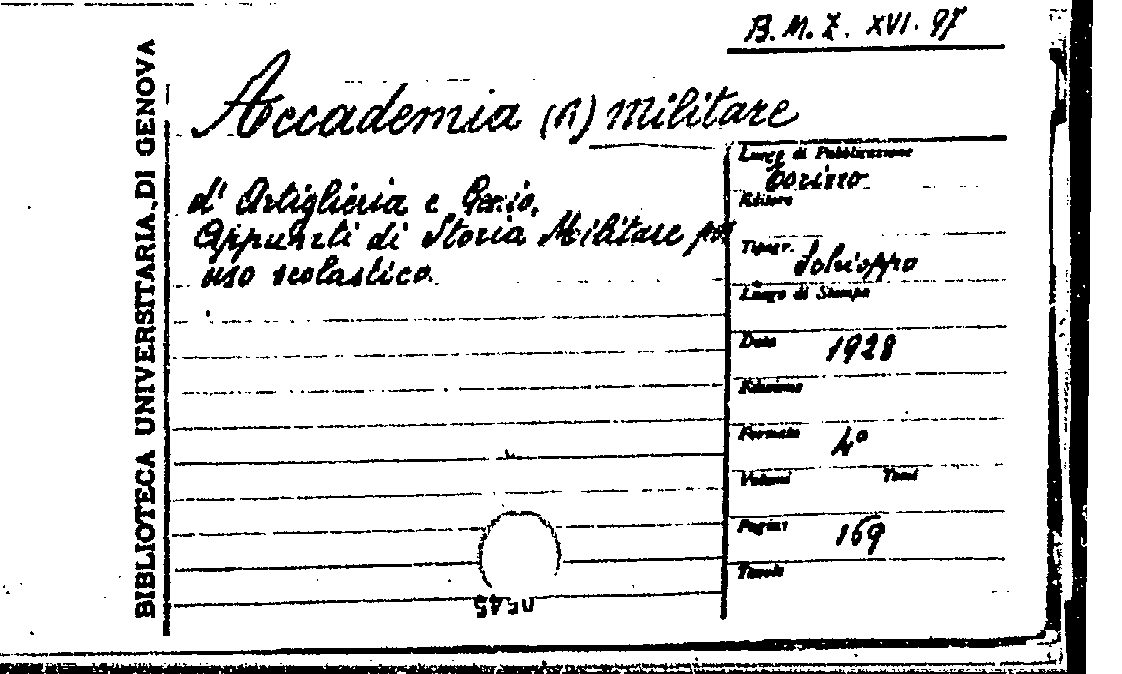 B.M.Z. XVI. 97
BIBLIOTECA UNIVERSITARIA DI GENOVA
Accademia (1) Militare
d' Artiglieria e Genio.
Appunti di Storia Militare per
uso scolastico.
Luogo di Pubblicazione
Torino
Editore
Tipogr. Schioppo
Luogo di Stampa
Data 1928
Edizione
Formato 4°
Volumi Tomi
Pagine 169
Tavole